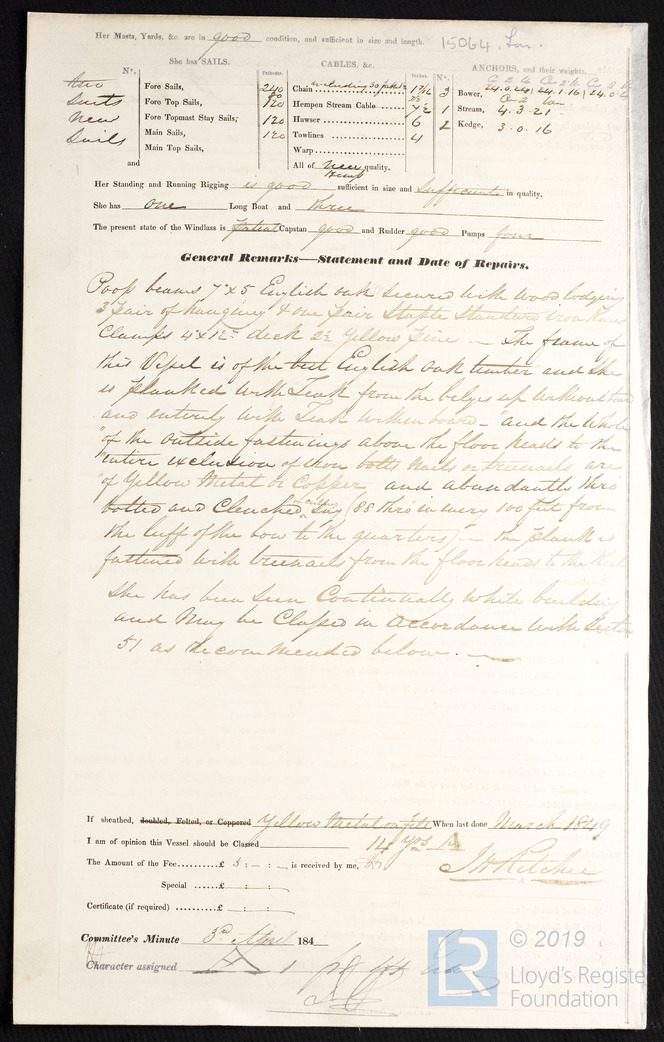 Her Masts, Yards, &c. are in good condition, and sufficient in size and length.
15064 Lon.
She has SAILS.
CABLES, &c.
ANCHORS, and their weights.
N°.
Fathoms.
Inches.
N°.
two Suits New Sails
and
Fore Sails,
Fore Top Sails, 120
Fore Topmast Stay Sails, 120
Main Sails, 120
Main Top Sails,
Chain 1 7/16
Hempen Stream Cable 7½
Hawser 6
Towlines 4
Warp
All of New Hemp quality.
3 Bower,
1 Stream, 4.3.21
2 Kedge, 3.0.16
Her Standing and Running Rigging is good sufficient in size and Sufficient in quality.
She has one Long Boat and three
The present state of the Windlass is Patent Capstan good and Rudder good Pumps four
General Remarks—Statement and Date of Repairs.
Poop beams 7 x 5 English oak secured with wood lodging
3 pair of hanging & one pair Staple Standard Iron Knees
Clamps 4 x 12 deck 2½ Yellow Pine – The frame of
this Vessel is of the best English oak timber and She
is planked with Teak from the belges up without board
and entirely with Teak within board – "and the Whole
"of the outside fastenings above the floor heads to the
"entire exclusion of iron bolts nails or treenails are
"of Yellow Metal or Copper and abundantly thro
bolted and Clenched (88 thro in every 100 feet from
the luff of the bow to the quarters) – the plank is
fastened with treenails from the floor heads to the Keel
She has been Seen Continually while building
and May be Classed in accordance with Section
51 as Recommended below. –
If sheathed, doubled, Felted, or Coppered Yellow Metal on Felt When last done March 1849
I am of opinion this Vessel should be Classed 14 yrs A
The Amount of the Fee..........£ 5 : – : –, is received by me,
J H Ritchie
Special ......£ : :
Certificate (if required) ..........£ : :
Committee's Minute 3rd April 184
Character assigned A 1
LR
© 2019
Lloyd's Register
Foundation